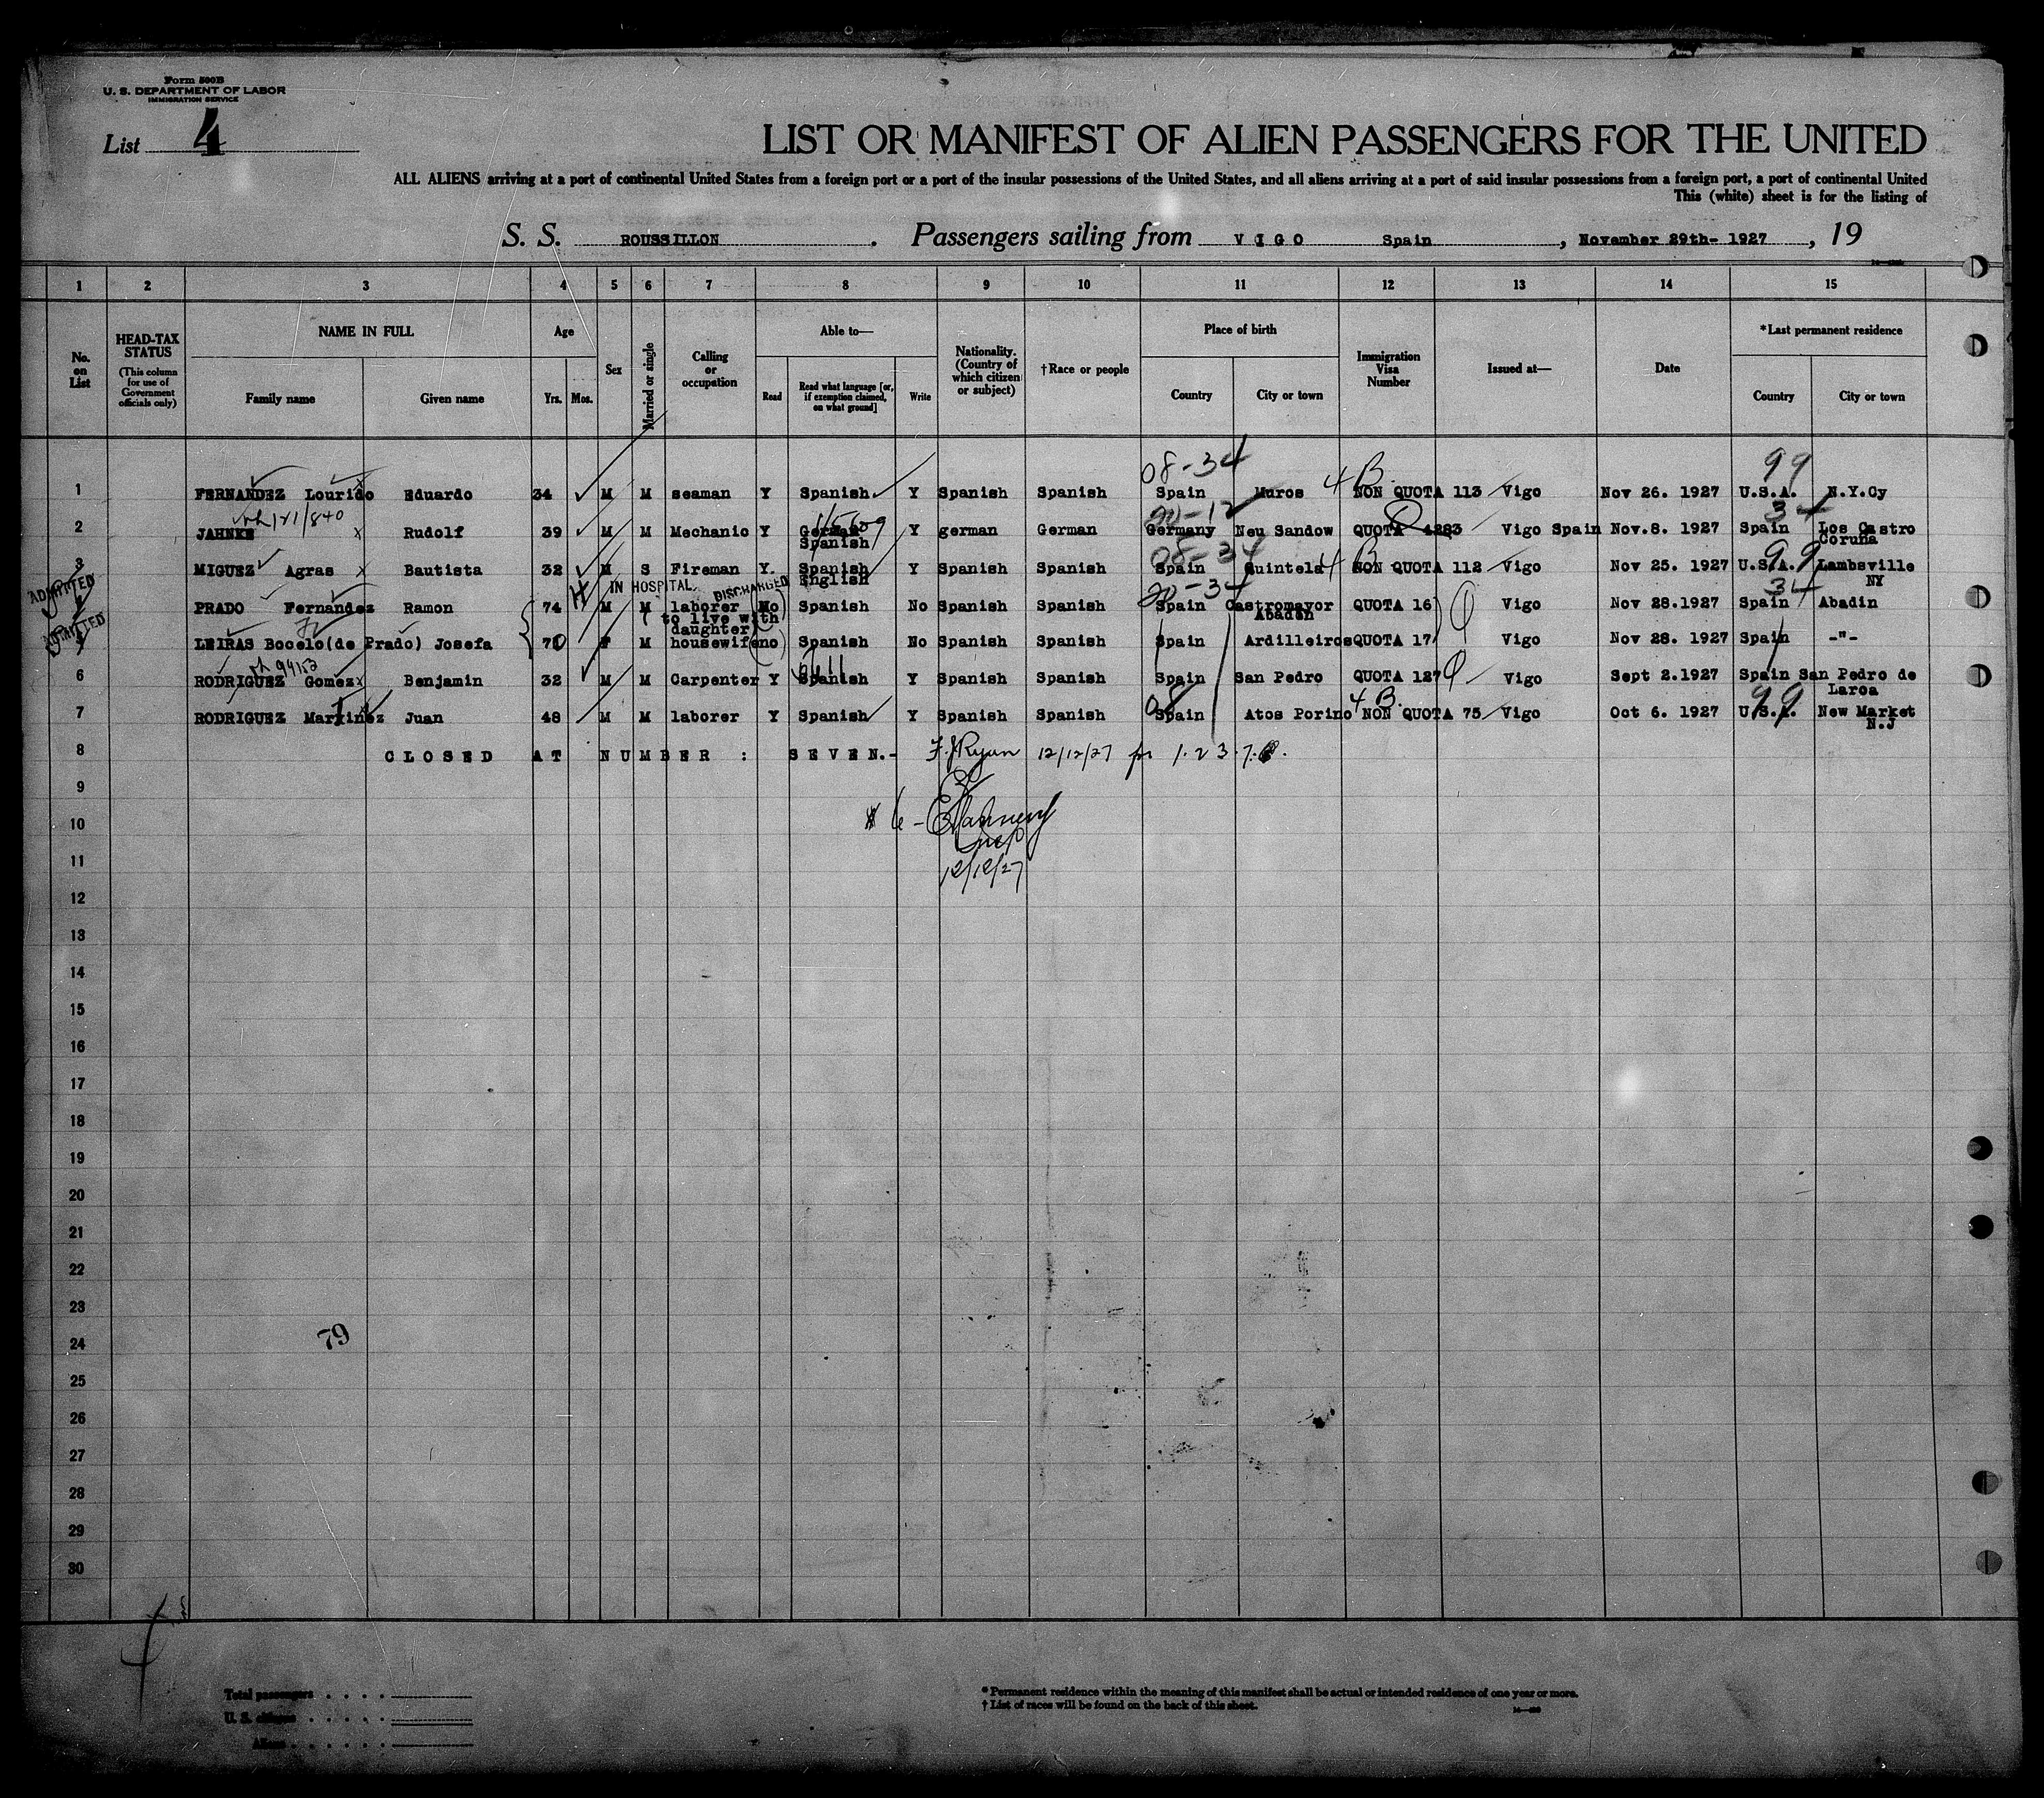 Form 500B
U. S. DEPARTMENT OF LABOR
IMMIGRATION SERVICE
List 4
LIST OR MANIFEST OF ALIEN PASSENGERS FOR THE UNITED
ALL ALIENS arriving at a port of continental United States from a foreign port or a port of the insular possessions of the United States, and all aliens arriving at a port of said insular possessions from a foreign port, a port of continental United
This (white) sheet is for the listing of
S. S. ROUSSILLON. Passengers sailing from VIGO Spain, November 29th- 1927, 19
1 2 3 4 5 6 7 8 9 10 11 12 13 14 15
No. on List
HEAD-TAX STATUS
(This column for use of Government officials only)
NAME IN FULL
Family name
Given name
Age
Yrs. Mos.
Sex
Married or single
Calling or occupation
Able to—
Read
Read what language [or, if exemption claimed, on what ground]
Write
Nationality. (Country of which citizen or subject)
†Race or people
Place of birth
Country
City or town
Immigration Visa Number
Issued at—
Date
*Last permanent residence
Country
City or town
08-34 99
1 FERNANDEZ Lourido Eduardo 34 M M seaman Y Spanish Y Spanish Spanish Spain Muros 4B NON QUOTA 113 Vigo Nov 26. 1927 U.S.A. N.Y.Cy
20-12 34
2 JAHNKE Rudolf 39 M M Mechanic Y German Spanish Y german German Germany Neu Sandow QUOTA 4283 Vigo Spain Nov.8. 1927 Spain Los Castro Coruña
08-34 99
3 MIGUEZ Agras Bautista 32 M S Fireman Y. Spanish English Y Spanish Spanish Spain Quintela 4B NON QUOTA 112 Vigo Nov 25. 1927 U.S.A. Lambsville NY
ADMITTED IN HOSPITAL DISCHARGED 20-34 34
4 PRADO Fernandez Ramon 74 M M laborer (to live with daughter) No Spanish No Spanish Spanish Spain Castromayor Abadin QUOTA 16 Vigo Nov 28.1927 Spain Abadin
ADMITTED
5 LEIRAS Bocelo(de Prado) Josefa 70 F M housewife no Spanish No Spanish Spanish Spain Ardilleiros QUOTA 17 Vigo Nov 28. 1927 Spain -"-
6 RODRIGUEZ Gomez Benjamin 32 M M Carpenter Y Spanish Y Spanish Spanish Spain San Pedro QUOTA 127 Vigo Sept 2.1927 Spain San Pedro de Laroa
08 4B. 99
7 RODRIGUEZ Martinez Juan 48 M M laborer Y Spanish Y Spanish Spanish Spain Atos Porino NON QUOTA 75 Vigo Oct 6. 1927 U.S.A. New Market N.J
8 CLOSED AT NUMBER : SEVEN.- F.J Ryan 12/12/27 for 1. 2 3. 7.
9
10 # 6 -
11 12/12/27
12
13
14
15
16
17
18
19
20
21
22
23
24 79
25
26
27
28
29
30
Total passengers
U. S. citizens
Aliens
* Permanent residence within the meaning of this manifest shall be actual or intended residence of one year or more.
† List of races will be found on the back of this sheet.